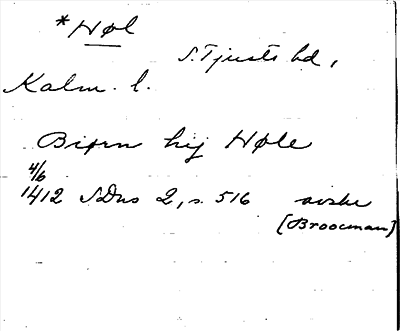 *Høl
S. Tjusts hd,
Kalm. l.
Biørn hij Høle
4/6
1412 SDns 2, s. 516 avskr
(Broocman)